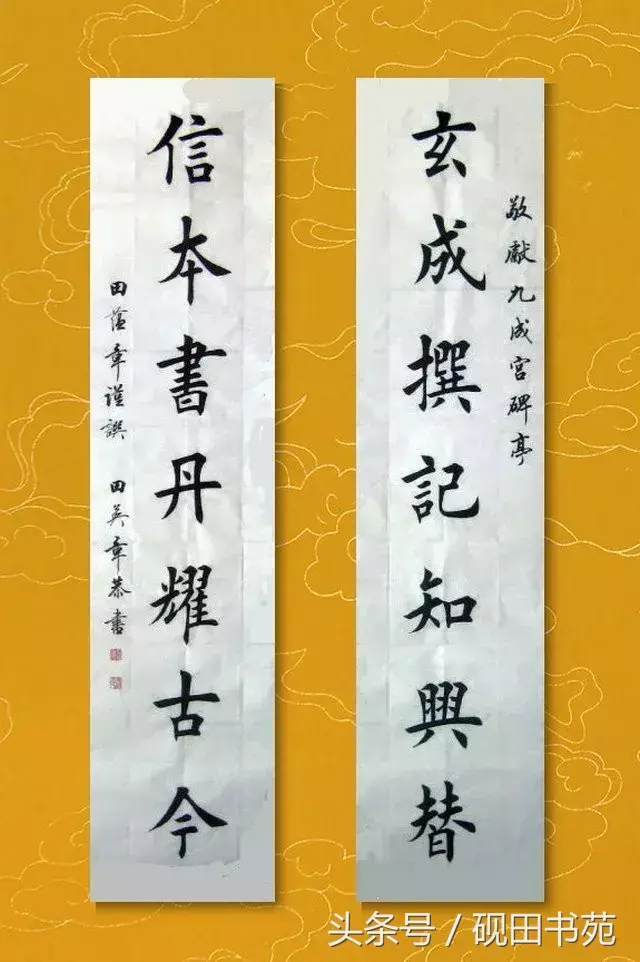 敬獻九成宮碑亭
玄成撰記知興替
信本書丹耀古今
田蘊章謹譔 田英章恭書
头条号 / 砚田书苑